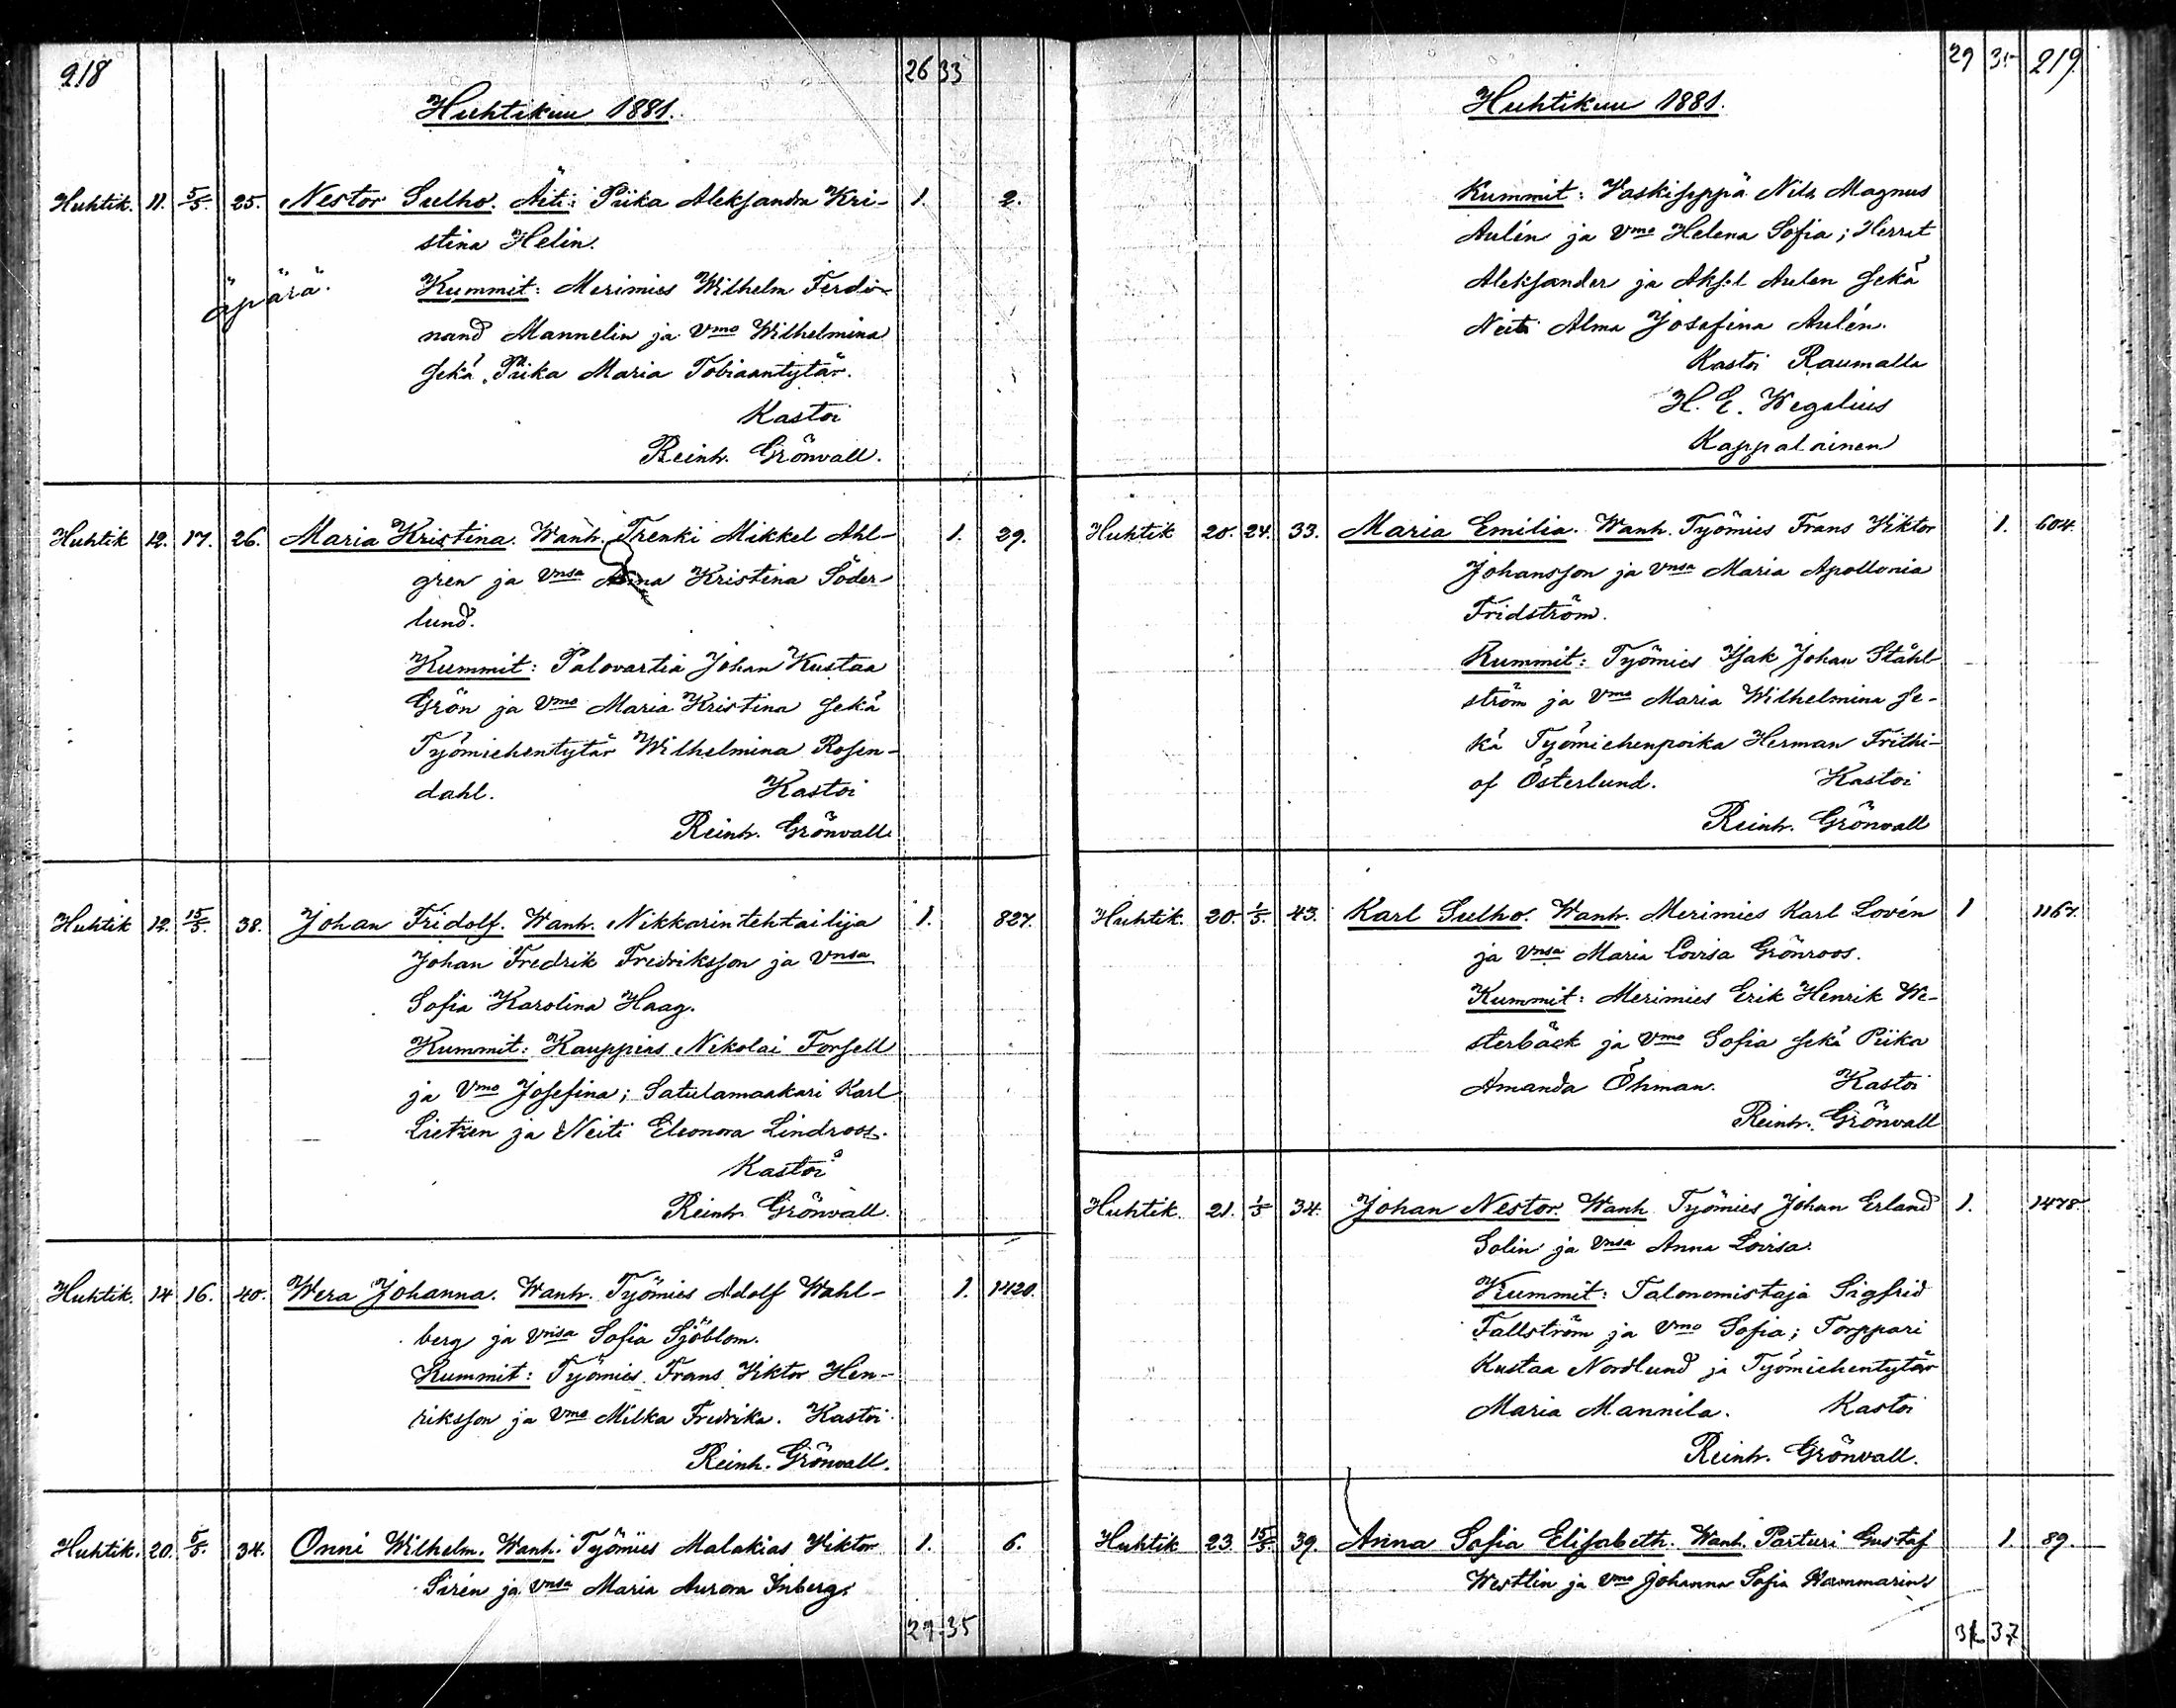 218
26 33
Huhtikuu 1881.
Huhtik. 11. 5/5. 25. Nestor Sulho. Äiti: Piika Aleksandra Kri- 1. 2.
stina Helin.
äpärä.
Kummit: Merimies Wilhelm Ferdi-
nand Mannelin ja Vmo Wilhelmina
sekä Piika Maria Tobiaantytär.
Kastoi
Reinh. Grönvall.
Huhtik 12. 17. 26. Maria Kristina. Wanh. Trenki Mikkel Ahl- 1. 29.
gren ja Vnsa Kristina Söder-
lund.
Kummit: Palovartia Johan Kustaa
Grön ja Vmo Maria Kristina sekä
Työmiehentytär Wilhelmina Rosen-
dahl. Kastoi
Reinh. Grönvall.
Huhtik 12. 15/5. 38. Johan Fridolf. Wanh. Nikkarintehtailija 1. 827.
Johan Fredrik Fredriksson ja Vnsa
Sofia Karolina Haag.
Kummit: Kauppias Nikolai Forsell
ja Vmo Josefina; Satulamaakari Karl
Lietzen ja Neiti Eleonora Lindroos.
Kastoi
Reinh. Grönvall.
Huhtik. 14 16. 40. Wera Johanna. Wanh. Työmies Adolf Wahl- 1. 1420.
berg ja Vnsa Sofia Sjöblom.
Kummit: Työmies Frans Viktor Hen-
riksson ja Vmo Milka Fredrika. Kastoi
Reinh. Grönvall.
Huhtik. 20. 5/5. 34. Onni Wilhelm. Wanh. Työmies Malakias Viktor 1. 6.
Sirén ja Vnsa Maria Aurora Inberg.
27 35
29 35 219.
Huhtikuu 1881.
Kummit: Vaskiseppä Nils Magnus
Aulén ja Vmo Helena Sofia; Herrat
Aleksander ja Aksel Aulen sekä
Neiti Alma Josefina Aulén.
Kastoi Raumalla
H. E. Wegelius
Kappalainen
Huhtik 20. 24. 33. Maria Emilia. Wanh. Työmies Frans Viktor 1. 604.
Johansson ja Vnsa Maria Apollonia
Fridström.
Kummit: Työmies Isak Johan Ståhl-
ström ja Vmo Maria Wilhelmina se-
kä Työmiehenpoika Herman Frithi-
of Österlund. Kastoi
Reinh. Grönvall
Huhtik. 20. 1/5. 43. Karl Sulho. Wanh. Merimies Karl Lovén 1 1167.
ja Vnsa Maria Lovisa Grönroos.
Kummit: Merimies Erik Henrik We-
sterbäck ja Vmo Sofia sekä Piika
Amanda Öhman. Kastoi
Reinh. Grönvall
Huhtik. 21. 1/5 34. Johan Nestor. Wanh. Työmies Johan Erland 1. 1478.
Solin ja Vnsa Anna Lovisa.
Kummit: Talonomistaja Sigfrid
Fallström ja Vmo Sofia; Torppari
Kustaa Nordlund ja Työmiehentytär
Maria Mannila. Kastoi
Reinh. Grönvall.
Huhtik 23 15/5. 39. Anna Sofia Elisabeth. Wanh. Parturi Gustaf 1. 89.
Westlin ja Vmo Johanna Sofia
37